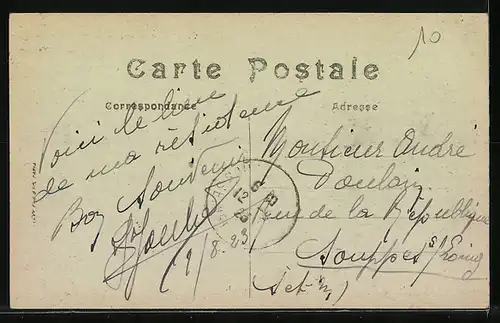 10
Carte Postale
Correspondance
Adresse
Voici le lieu
de ma résidence
Bon Souvenir
1/8.23
Monsieur André
Poulain
Rue de la République
Souppes s/Loing
(S et M)